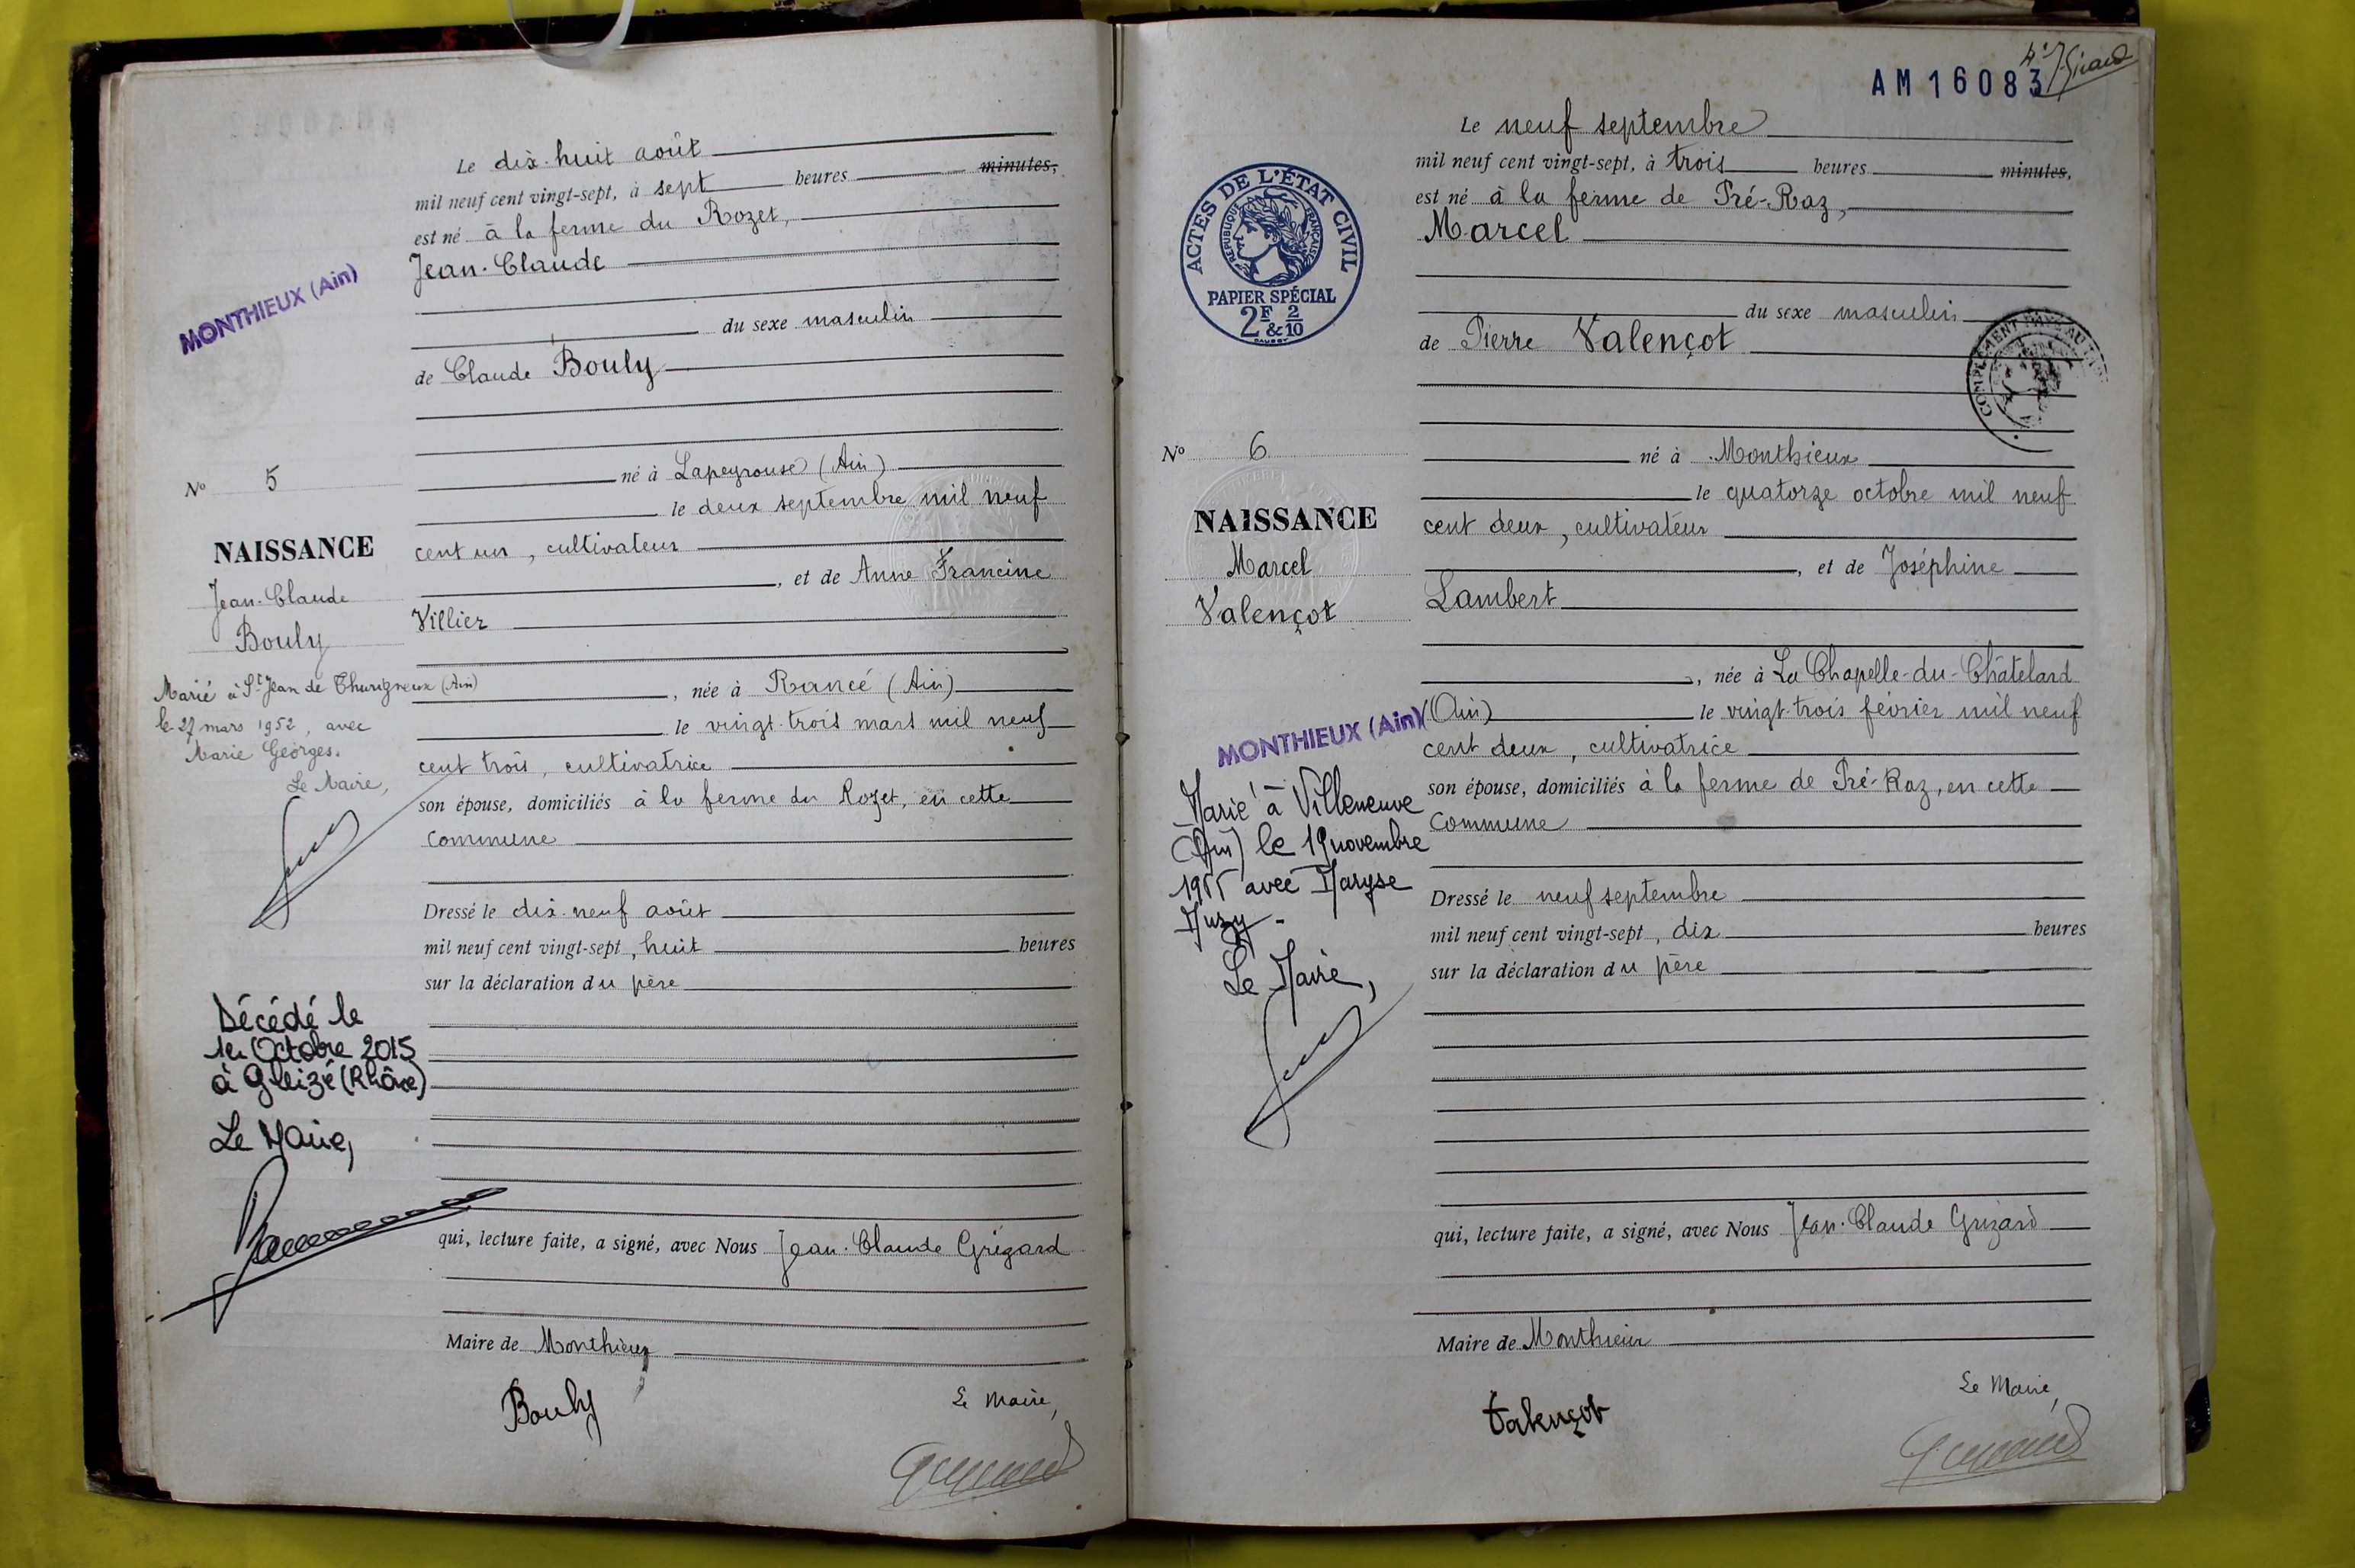 Le dix-huit août
mil neuf cent vingt-sept, à sept heures minutes,
est né à la ferme du Rozet,
Jean-Claude
MONTHIEUX (Ain)
du sexe masculin
de Claude Bouly
né à Lapeyrouse (Ain)
Nº 5
le deux septembre mil neuf
NAISSANCE
cent un, cultivateur
, et de Anne Francine
Jean-Claude
Villier
Bouly
Marié à St Jean de Thurigneux (Ain)
, née à Rancé (Ain)
le 27 mars 1952, avec
le vingt-trois mars mil neuf
Marie Georges.
cent trois, cultivatrice
Le Maire,
son épouse, domiciliés à la ferme du Rozet, en cette
commune
Dressé le dix-neuf août
mil neuf cent vingt-sept, huit heures
sur la déclaration du père
Décédé le
1er Octobre 2015
à Gleizé (Rhône)
Le Maire,
qui, lecture faite, a signé, avec Nous Jean-Claude Grizard
Maire de Monthieux
Bouly
Le Maire,
AM16083
Le neuf septembre
mil neuf cent vingt-sept, à trois heures minutes,
est né à la ferme de Pré-Raz,
Marcel
ACTES DE L'ÉTAT CIVIL
RÉPUBLIQUE FRANÇAISE
PAPIER SPÉCIAL
2F & 2/10
du sexe masculin
de Pierre Valençot
COMPLÉMENT PAYÉ AU
né à Monthieux
Nº 6
le quatorze octobre mil neuf
NAISSANCE
cent deux, cultivateur
Marcel
, et de Joséphine
Valençot
Lambert
, née à La Chapelle-du-Châtelard
(Ain) le vingt-trois février mil neuf
MONTHIEUX (Ain)
cent deux, cultivatrice
son épouse, domiciliés à la ferme de Pré-Raz, en cette
commune
Marié à Villeneuve
(Ain) le 19 novembre
1955 avec Maryse
Muzy.
Le Maire,
Dressé le neuf septembre
mil neuf cent vingt-sept, dix heures
sur la déclaration du père
qui, lecture faite, a signé, avec Nous Jean-Claude Grizard
Maire de Monthieux
Valençot
Le Maire,